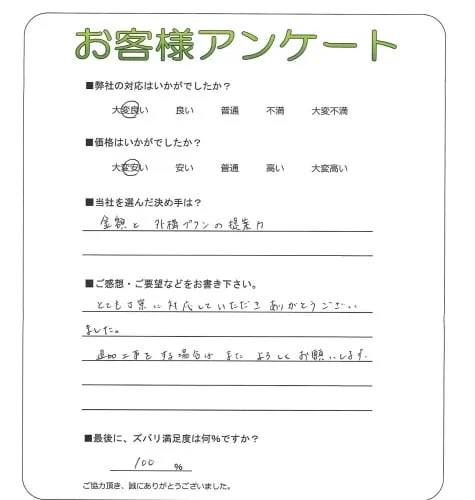 お客様アンケート
■弊社の対応はいかがでしたか？
大変良い 良い 普通 不満 大変不満
■価格はいかがでしたか？
大変安い 安い 普通 高い 大変高い
■当社を選んだ決め手は？
金額と 外構プランの提案力
■ご感想・ご要望などをお書き下さい。
とても丁寧に対応していただき ありがとうござい
ました。
追加工事をする場合は また よろしくお願いします。
■最後に、ズバリ満足度は何％ですか？
100 ％
ご協力頂き、誠にありがとうございました。